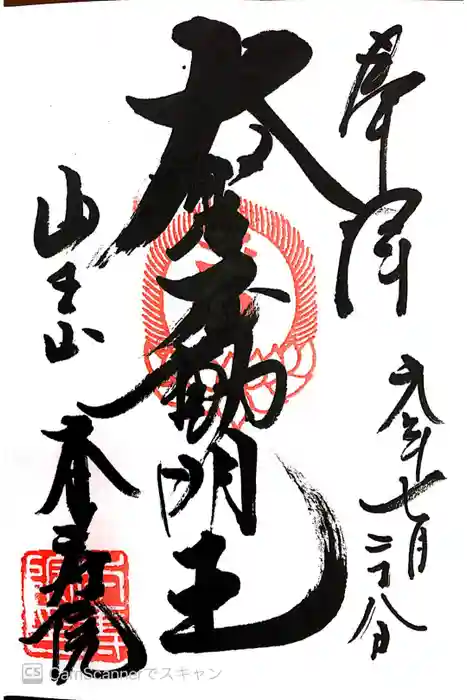 奉拝
元年七月二十八日
大聖不動明王
山王山
本寿院
CS CamScannerでスキャン